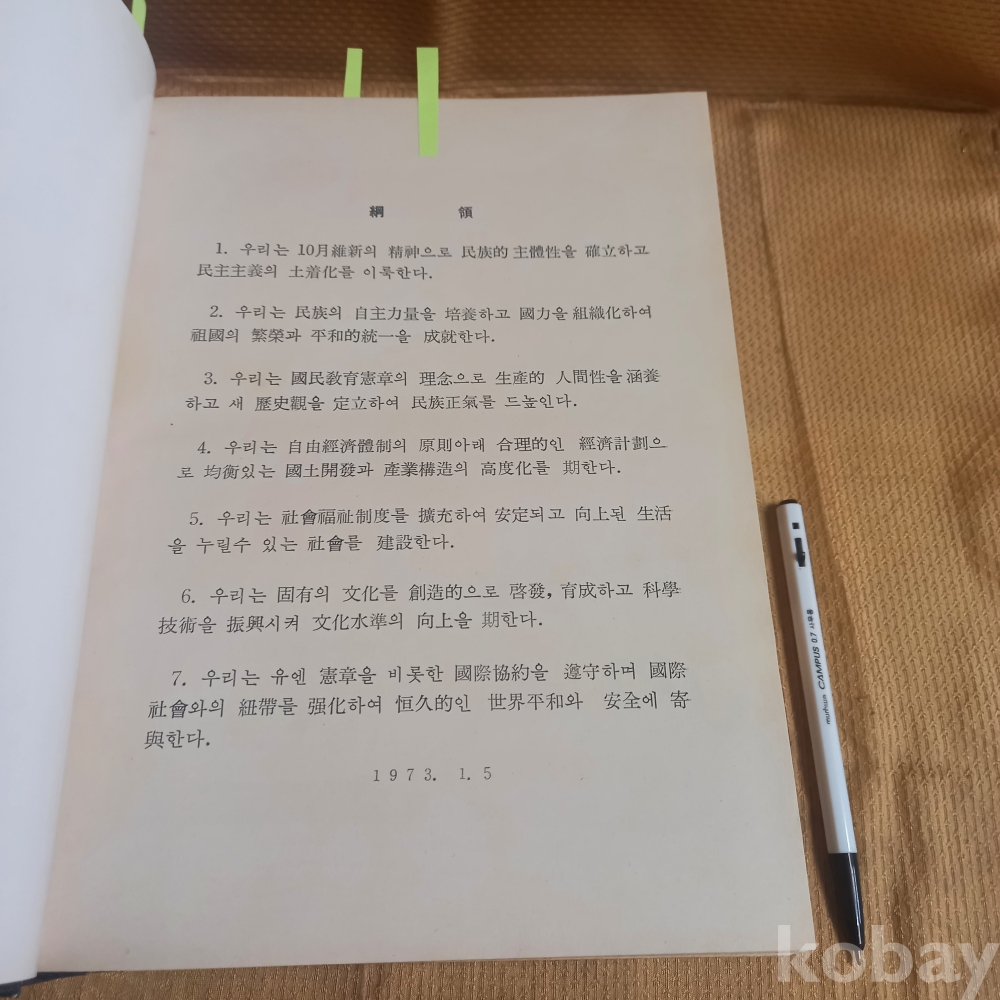 綱 領
1. 우리는 10月維新의 精神으로 民族的 主體性을 確立하고
民主主義의 土着化를 이룩한다.
2. 우리는 民族의 自主力量을 培養하고 國力을 組織化하여
祖國의 繁榮과 平和的統一을 成就한다.
3. 우리는 國民敎育憲章의 理念으로 生產的 人間性을 涵養
하고 새 歷史觀을 定立하여 民族正氣를 드높인다.
4. 우리는 自由經濟體制의 原則아래 合理的인 經濟計劃으
로 均衡있는 國土開發과 產業構造의 高度化를 期한다.
5. 우리는 社會福祉制度를 擴充하여 安定되고 向上된 生活
을 누릴수 있는 社會를 建設한다.
6. 우리는 固有의 文化를 創造的으로 啓發, 育成하고 科學
技術을 振興시켜 文化水準의 向上을 期한다.
7. 우리는 유엔 憲章을 비롯한 國際協約을 遵守하며 國際
社會와의 紐帶를 强化하여 恒久的인 世界平和와 安全에 寄
與한다.
1973. 1. 5
munhwa CAMPUS 0.7 사무용
kobay